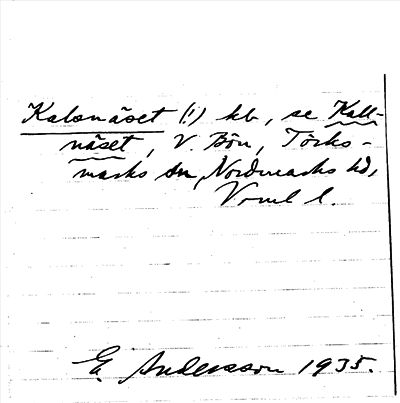 Kalsnäset (!) kb, se Kall-
näset, V. Bön, Töcks-
marks sn, Nordmarks hd,
Vrml l.
E. Andersson 1935.